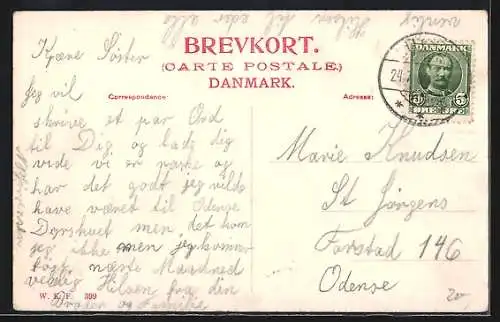 venlig
Hilsen til eder alle
BREVKORT.
(CARTE POSTALE.)
DANMARK.
Correspondance:
Adresse:
DANMARK
5 5
24
Kjære Søster
Jeg vil
skrive et par Ord
til Dig og lade dig
vide vi er raske og
har det godt jeg vilde
have været til Odense
Dyrskuet men det kom
jeg ikke men jeg kommer
først næste Maaned
venlig Hilsen fra din
Broder og Familie
W. K. F. 399
Marie Knudsen
St Jørgens
Forstad 146
Odense
20